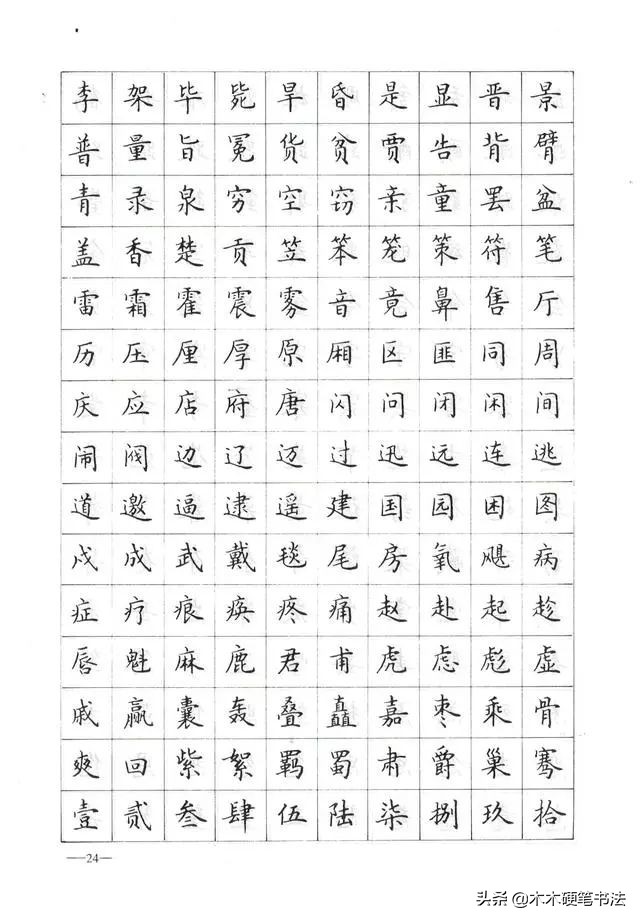 李架毕毙旱昏是显晋景
普量旨冕货贫贾告背臂
青录泉穷空窃亲童罢盆
盖香楚贡笠笨笼策符笔
雷霜霍震雾音竟鼻售厅
历压厘厚原厢区匪同周
庆应店府唐闪问闭闲间
闹阀边辽迈过迅远连逃
道邀逼逮遥建国园困图
戍成武戴毯尾房氧飓病
症疗痕痪疼痛赵赴起趁
唇魁麻鹿君甫虎虑彪虚
戚赢囊轰叠矗嘉枣乘骨
爽回紫絮羁蜀肃爵巢骞
壹贰叁肆伍陆柒捌玖拾
—24—
头条@木木硬笔书法